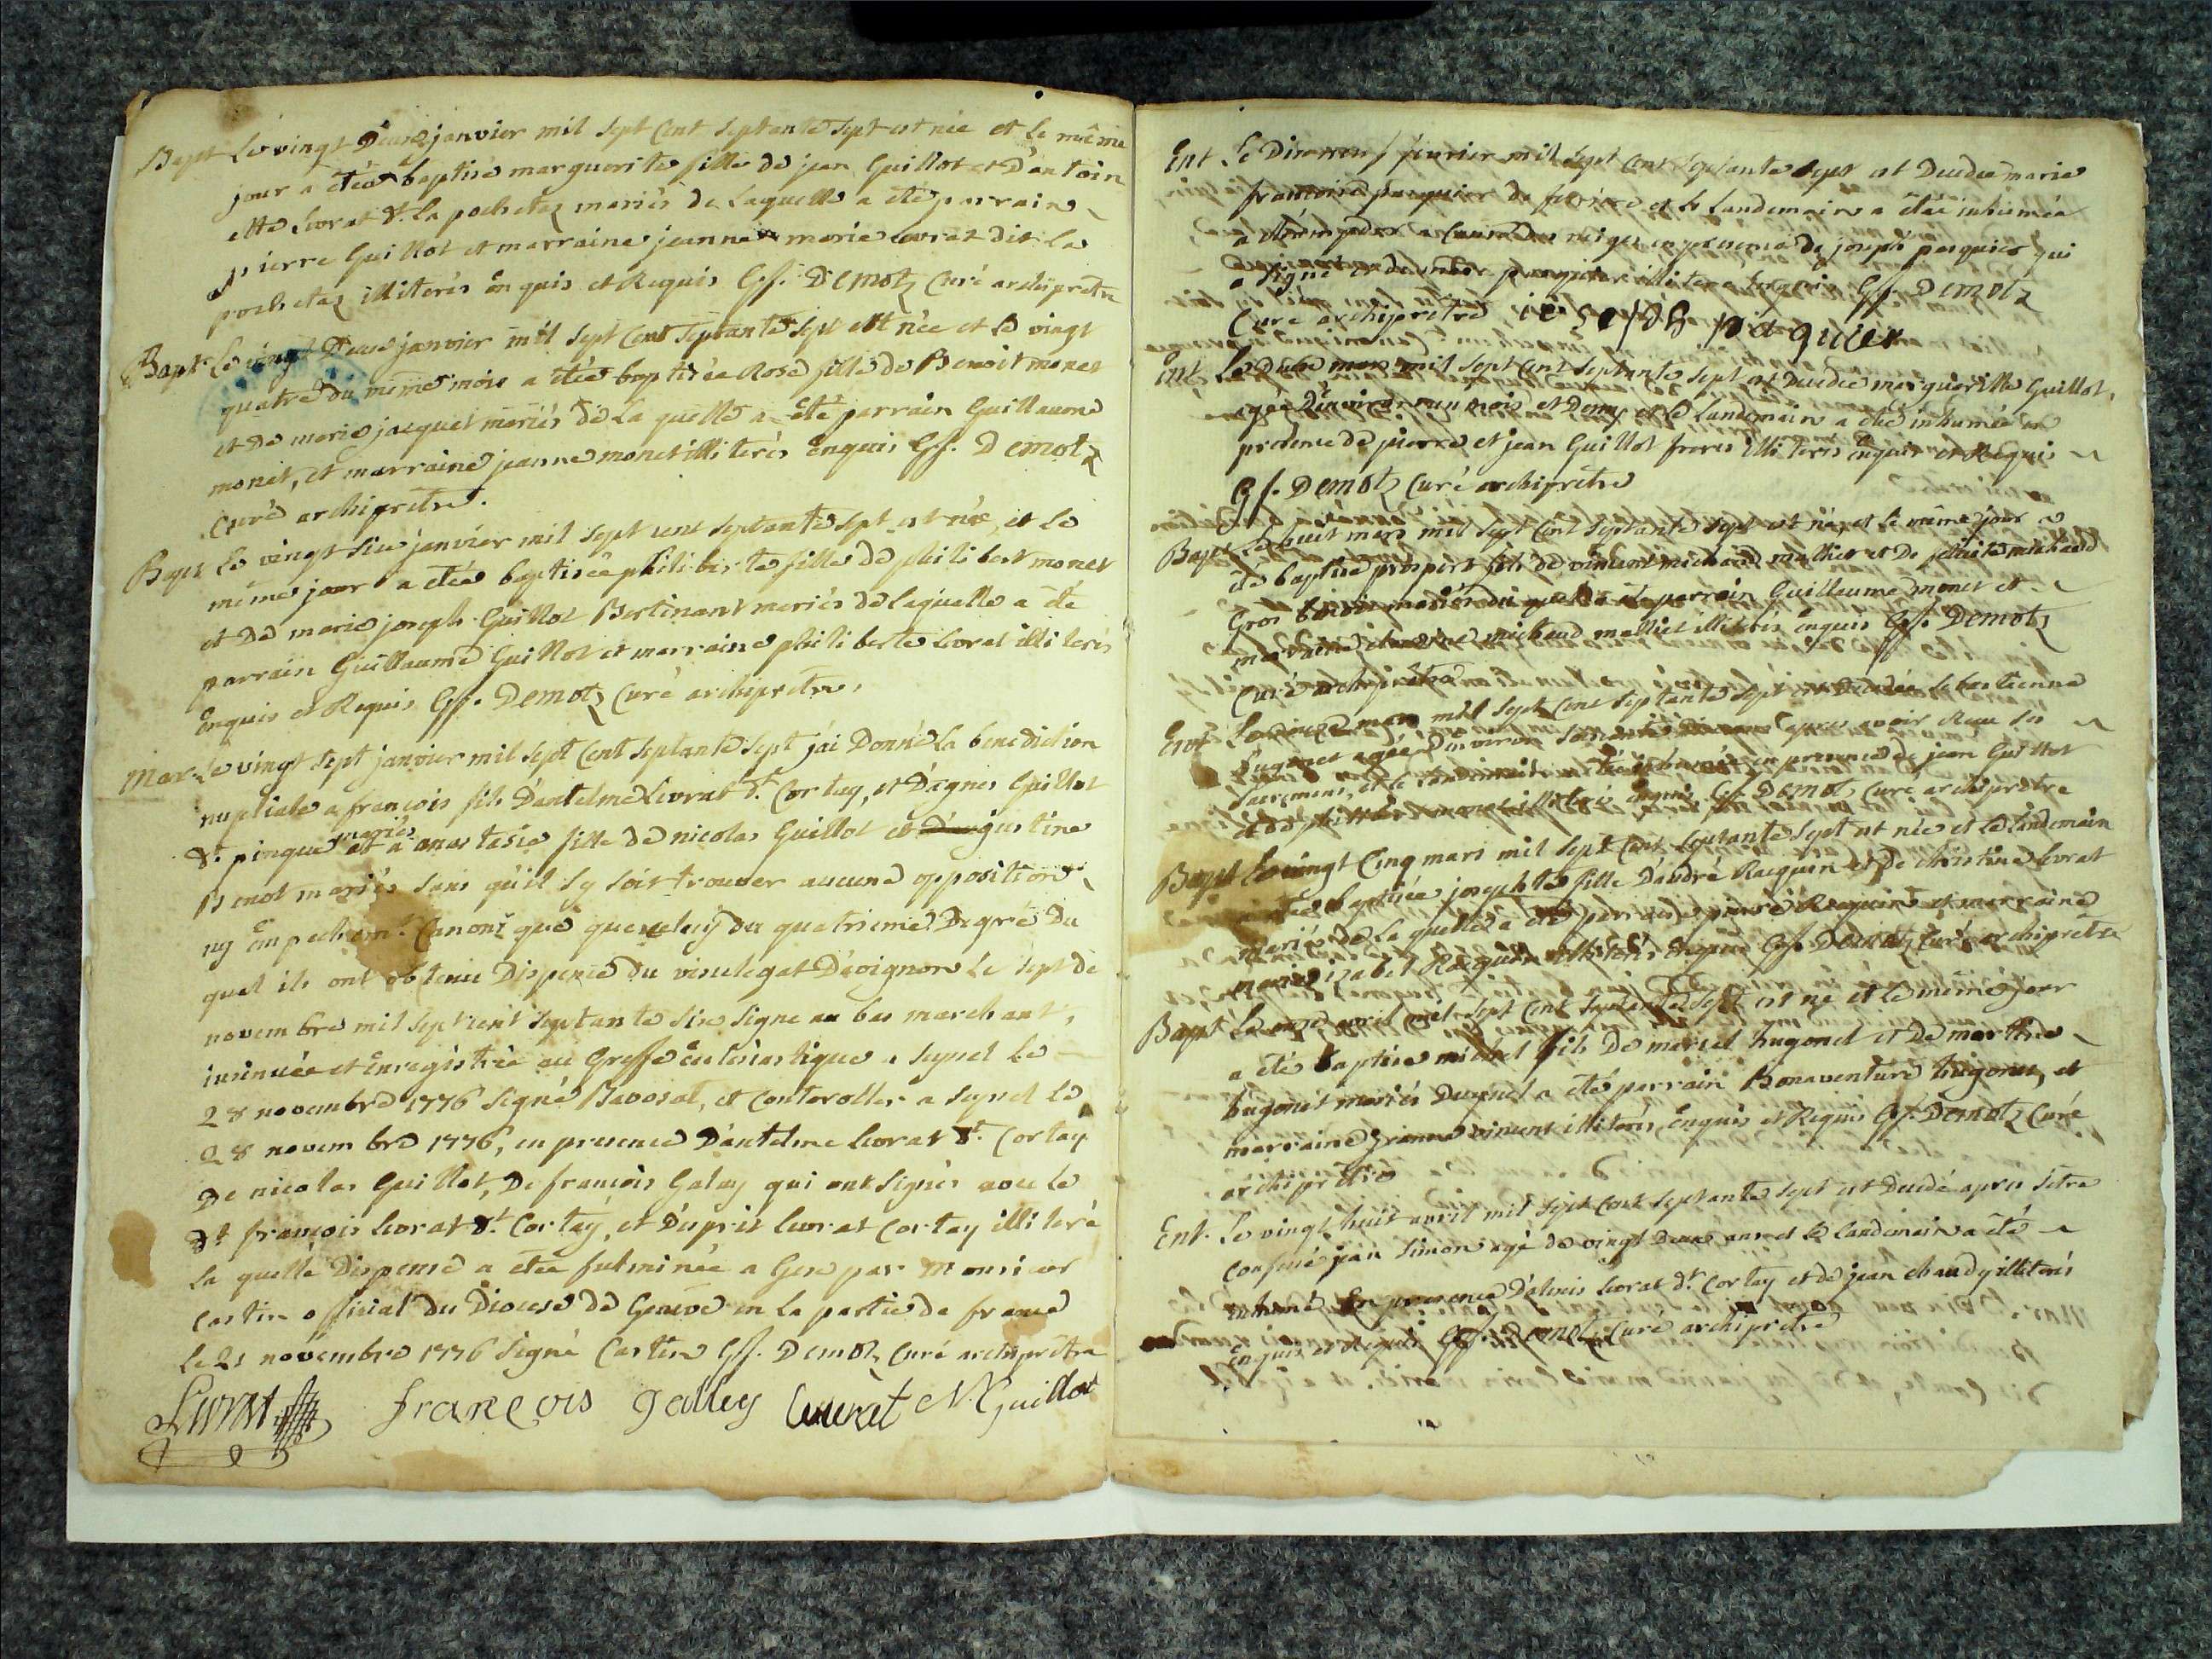 Bapt Le vingt Deux janvier mil sept Cent septante sept est née et le même
jour a étée baptisé marguerite fille de jean Guillot et D'antoin
ette Livrat dt. la pochetaz mariés de Laquelle a été parrain
pierre Guillot et marraine jeanne marie Livrat dit la
pochetaz illiterés enquis et Requis Gf. Demotz Curé archipretre
Bapt Le vingt Deux janvier mil sept Cent septante sept est née et le vingt
quatre du même mois a étée baptisée Rose fille de Benoit monet
et de marie jacquet mariés de La quelle a été parrain Guillaume
monet, et marraine jeanne monet illiterés Enquis Gf. Demotz
Curé archipretre.
Bapt Le vingt six janvier mil sept cent septante sept est née, et le
même jour a étée baptisée philiberte fille de philibert monet
et De marie joseph Guillot Bertinant mariés de laquelle a été
parrain Guillaume Guillot et marraine philiberte Livrat illiterés
Enquis et Requis Gf. Demotz Curé archipretre.
Mar Le vingt sept janvier mil sept Cent septante sept j'ai Donné La benediction
nuptiale a françois fils D'antelme Livrat dt. Cortay, et D'agnes Guillot
mariés
dt. pingue et a anastasie fille de nicolas Guillot et D'augustine
Benot mariés sans qu'il sy soit trouver aucune opposition
ny Empechemt. Canonique que celuy du quatrieme Degré Du
quel ils ont obtenu Dispense du vicelegat D'avignon Le sept de
novembre mil sept cent septante six signe au bas marchant,
insinuée et Enregistrée au Greffe Ecclesiastique a seyssel le
28 novembre 1776 signé Bavosat, et Controller a seyssel le
28 novembre 1776, en presence D'antelme Livrat dt. Cortay
De nicolas Guillot, De françois Galay qui ont signés avec le
dt françois Livrat dt. Cortay, et D'uprit Livrat Cortay illiteré
la quelle Dispense a étée fulminée a Gex par Monsieur
Castin official du Diocese de Genève en la partie de france
le 21 novembre 1776 signé Castin Gf. Demotz Curé archipretre
Livrat françois galley Leuvrat N. Guillot
Ent Le Dixneuf février mil sept Cent septante sept est Decedée marie
françoise pasquier de et le Landemain a étée inhumée
a cause des neiges en presence de joseph pasquier qui
a signé et de pasquier illiteré Enquis Gf. Demotz
Curé archipretre ioseph paquier
Ent Le Dix mars mil sept Cent septante sept est Decedée marguerite Guillot,
agée D'environ un mois et Demy et le Landemain a étée inhumée en
presence de pierre et jean Guillot freres illiterés Enquis et Requis
Gf. Demotz Curé archipretre
Bapt Le huit mars mil sept Cent septante sept est né, et le même jour a
été baptisé prospert fils de vincent michaud malliet et De michaud
Gros benoit mariés du quel a été parrain Guillaume monet et
marraine michaud malliet illiterés Enquis Gf. Demotz
Curé archipretre
Ent Le mars mil sept Cent septante sept est Decedée sebastienne
hugonet agée D'environ soixante apres avoir Recu ses
sacremens, et le landemain a étée inhumée en presence de jean Guillot
et de philibert monet illiterés Enquis Gf. Demotz Curé archipretre
Bapt Le vingt Cinq mars mil sept Cent septante sept est née et le landemain
a étée baptisée josephte fille D'andré Racquin et de christine Livrat
mariés de la quelle a été parrain pierre Racquin et marraine
marie izabel Racquin illiterés Enquis Gf. Demotz Curé archipretre
Bapt Le onze avril mil sept Cent septante sept est né et le même jour
a été baptisé michel fils De marcel hugonet et De marthe
hugonet mariés Duquel a été parrain Bonaventure hugonet, et
marraine vincent illiterés, Enquis et Requis Gf. Demotz Curé
archipretre
Ent. Le vingt huit avril mil sept Cent septante sept est Decedé apres s'etre
confessé jean simon agé de vingt Deux ans et le landemain a été
inhumé En presence D'alexis Livrat dt. Cortay et de jean chaudy illiterés
Enquis et Requis Gf. Demotz Curé archipretre